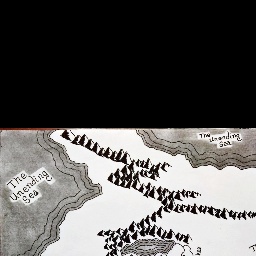 The
Unending
Sea
The
Unending
Sea